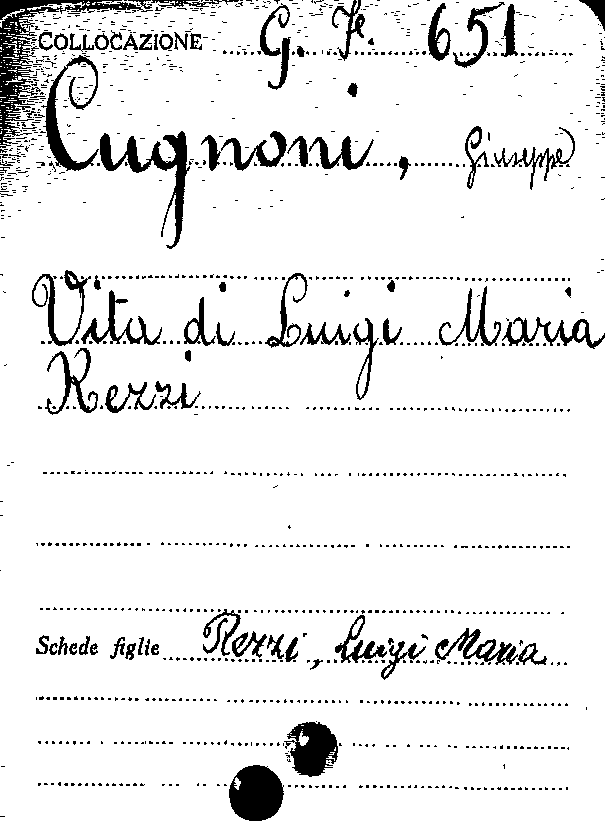 COLLOCAZIONE G. Fe. 651
Cugnoni, Giuseppe
Vita di Luigi Maria
Rezzi
Schede figlie Rezzi, Luigi Maria